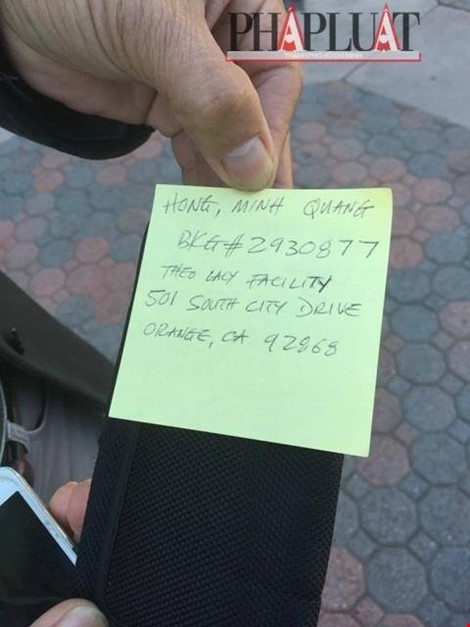 PHÁPLUẬT
THÀNH PHỐ HỒ CHÍ MINH
HONG, MINH QUANG
BKG# 2930877
THEO LACY FACILITY
501 SOUTH CITY DRIVE
ORANGE, CA 92868